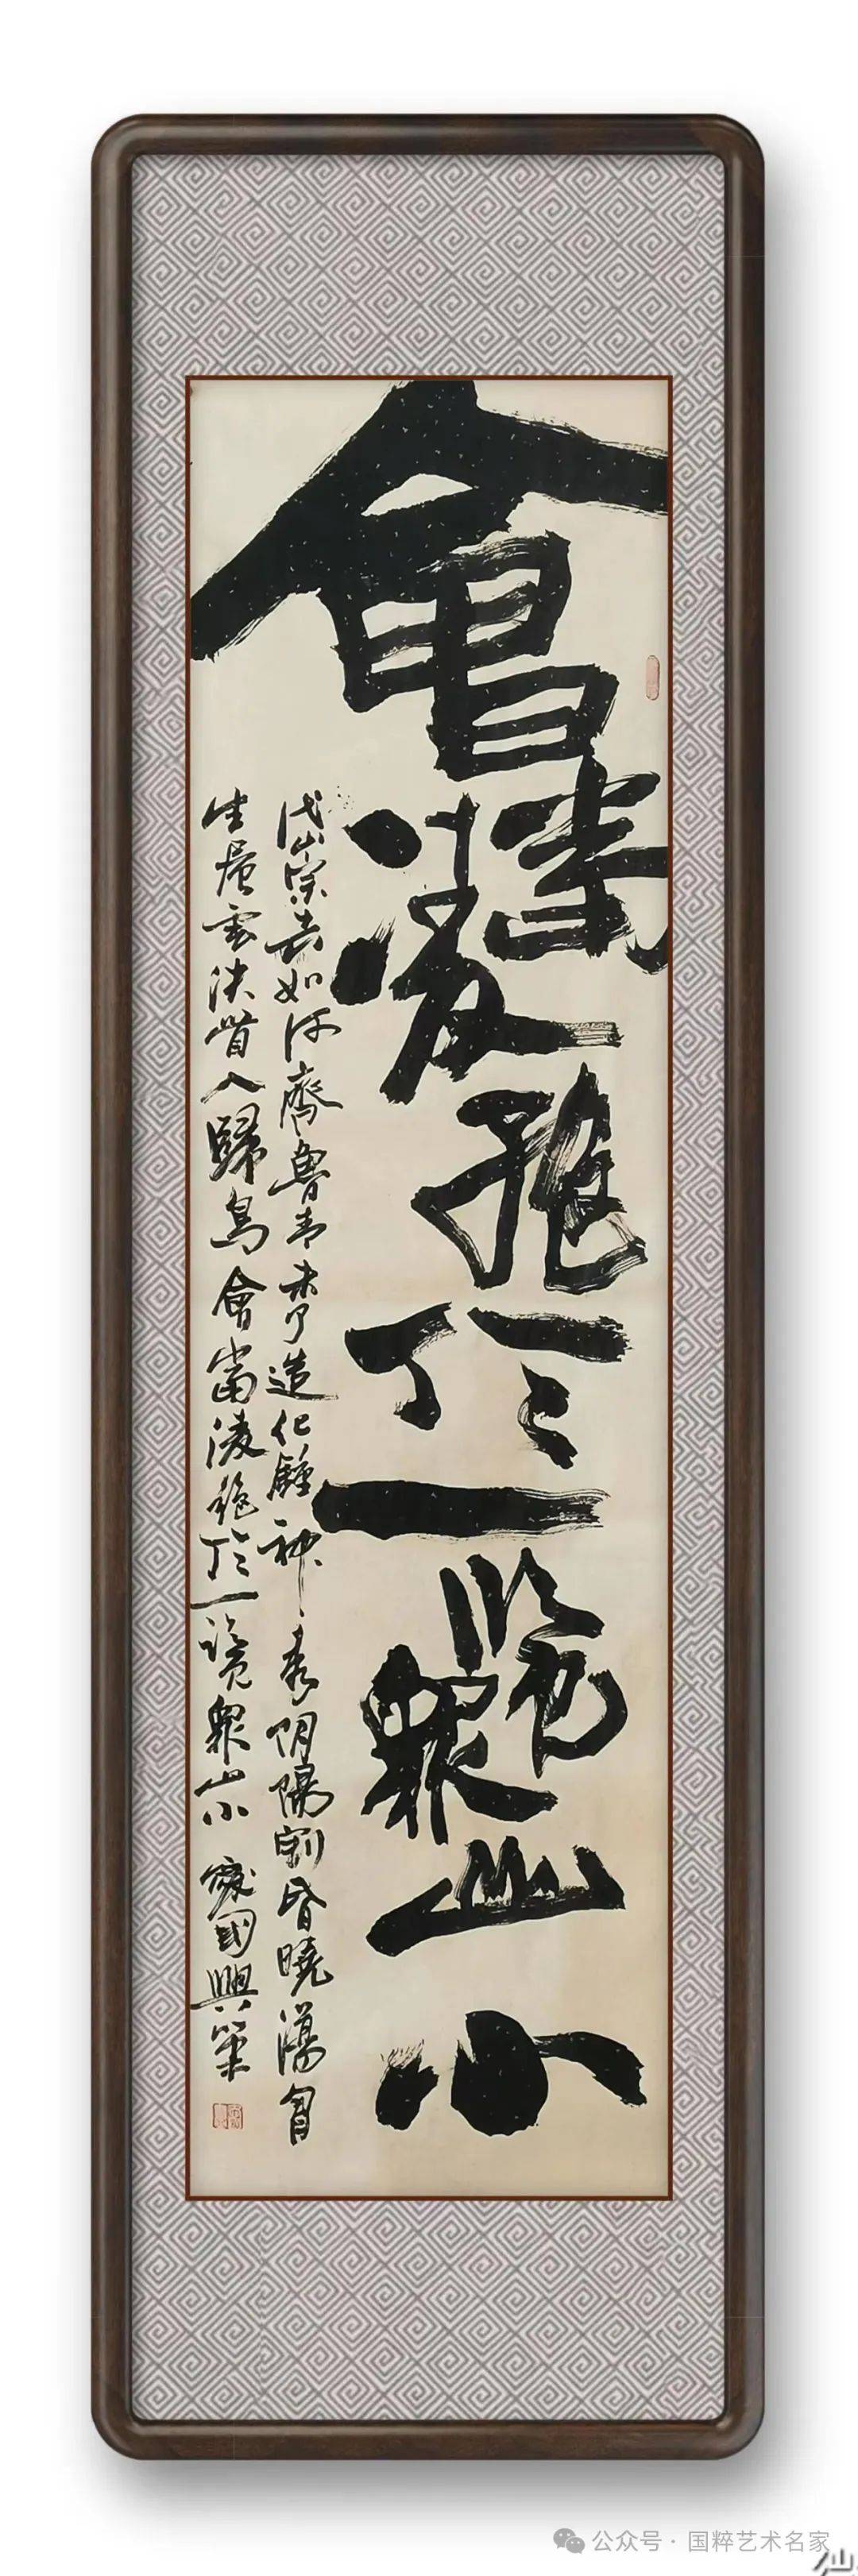 會當凌絕頂一覽眾山小
岱宗夫如何齊魯青未了造化鍾神秀阴陽割昏曉蕩胷
生層雲決眥入歸鳥會當凌絕頂一覽眾山小 國興筆
公众号 · 国粹艺术名家